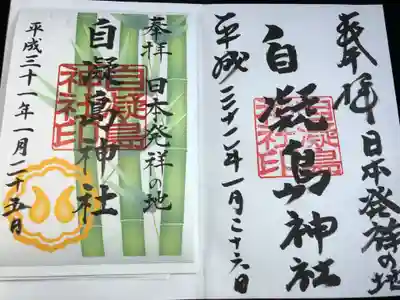 奉拝 日本発祥の地
自凝島神社
自凝島神社印
平成三十一年一月二十五日
奉拝 日本発祥の地
自凝島神社
自凝島神社印
平成三十一年一月二十六日